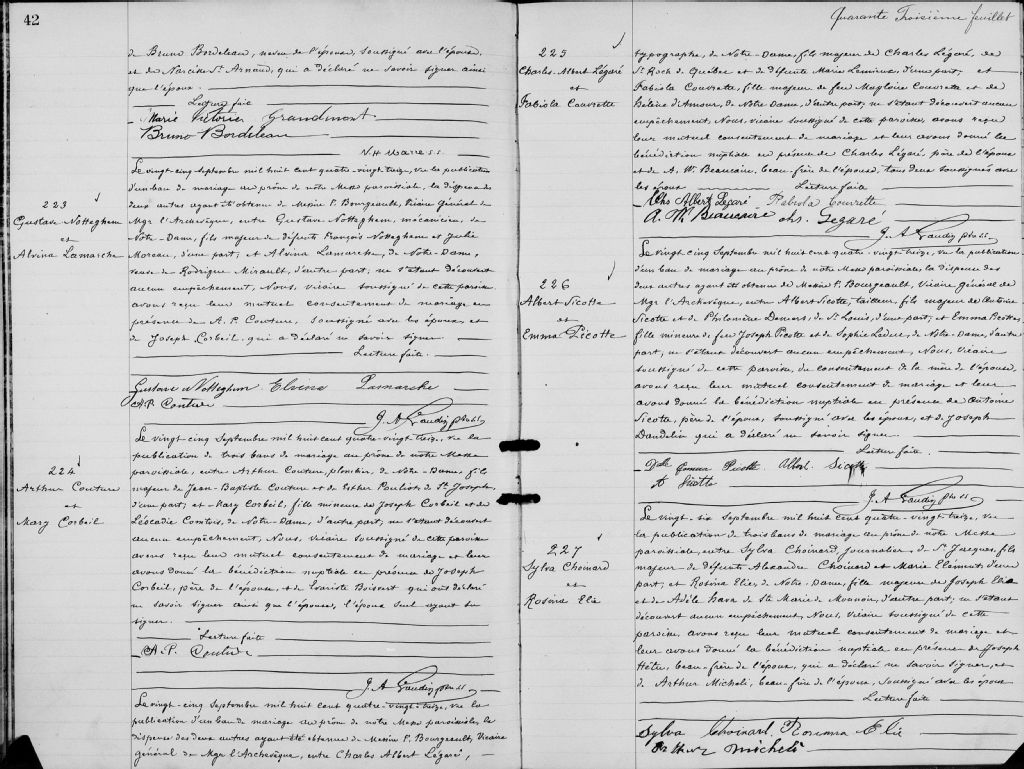 42
de Bruno Bordeleau, neveu de l'épouse, soussigné avec l'épouse,
et de Narcisse St. Arnaud, qui a déclaré ne savoir signer ainsi
que l'époux.
Lecture faite
Marie Victoire Grandmont
Bruno Bordeleau
223
Gustave Notteghem
et
Alvina Lamarche
Le vingt cinq septembre mil huit cent quatre-vingt-treize, vu la publication
d'un ban de mariage au prône de notre Messe paroissiale, la dispense des
deux autres ayant été obtenue de Messire P. Bourgeault, Vicaire Général de
Mgr l'Archevêque, entre Gustave Notteghem, mécanicien, de
Notre-Dame, fils majeur de défunts François Notteghem et Julie
Moreau, d'une part, et Alvina Lamarche, de Notre-Dame,
veuve de Rodrigue Mirault, d'autre part; ne s'étant découvert
aucun empêchement, Nous, vicaire soussigné de cette paroisse
avons reçu leur mutuel consentement de mariage en
présence de A. P. Couture, soussigné avec les époux, et
de Joseph Corbeil, qui a déclaré ne savoir signer.
Lecture faite.
Gustave Notteghem Elvina Lamarche
A.P. Couture
224
Arthur Couture
et
Mary Corbeil
Le vingt-cinq septembre mil huit cent quatre-vingt treize, vu la
publication de trois bans de mariage au prône de notre Messe
paroissiale, entre Arthur Couture plombier, de Notre-Dame, fils
majeur de Jean-Baptiste Couture et de Esther Pouliot, de St Joseph,
d'une part; et Mary Corbeil, fille mineure de Joseph Corbeil et de
Léocadie Comtois, de Notre-Dame, d'autre part; ne s'étant découvert
aucun empêchement, Nous, vicaire soussigné de cette paroisse
avons reçu leur mutuel consentement de mariage et leur
avons donné la bénédiction nuptiale en présence de Joseph
Corbeil, père de l'épouse, et de Evariste Boisvert qui ont déclaré
ne savoir signer ainsi que l'épouse, l'époux seul ayant su
signer.
Lecture faite
A. P. Couture
Le vingt-cinq septembre mil huit cent quatre-vingt-treize, vu la
publication d'un ban de mariage au prône de notre Messe paroissiale, la
dispense des deux autres ayant été obtenue de Messire P. Bourgeault, Vicaire
général de Mgr l'Archevêque, entre Charles Albert Légaré,
Quarante Troisième feuillet
225
Charles-Albert Légaré
et
Fabiola Couvrette
typographe, de Notre-Dame, fils majeur de Charles Légaré, de
St Roch de Québec et de défunte Marie Lemieux, d'une part; et
Fabiola Couvrette, fille majeure de feu Magloire Couvrette et de
Hélène d'Amour, de Notre Dame, d'autre part, ne s'étant découvert aucun
empêchement, Nous, vicaire soussigné de cette paroisse avons reçu
leur mutuel consentement de mariage et leur avons donné la
bénédiction nuptiale en présence de Charles Légaré, père de l'époux
et de A. W. Beaucaire, beau-frère de l'épouse, tous deux soussignés avec
les époux
Lecture faite
Chs Albert Légaré Fabiola Couvrette
Chs. Legaré
226
Albert Sicotte
et
Emma Picotte
Le vingt cinq septembre mil huit cent quatre-vingt-treize, vu la publication
d'un ban de mariage au prône de notre Messe paroissiale, la dispense des
deux autres ayant été obtenue de Messire P. Bourgeault, Vicaire général de
Mgr l'Archevêque, entre Albert Sicotte, tailleur, fils majeur de Antoine
Sicotte et de Philomène Demers, de St Louis, d'une part; et Emma Picotte,
fille mineure de feu Joseph Picotte et de Sophie Leduc, de Notre-Dame, d'autre
part, ne s'étant découvert aucun empêchement, Nous, Vicaire
soussigné de cette paroisse, du consentement de la mère de l'épouse,
avons reçu leur mutuel consentement de mariage et leur
avons donné la bénédiction nuptiale en présence de Antoine
Sicotte, père de l'époux, soussigné avec les époux, et de Joseph
Dandelin qui a déclaré ne savoir signer.
Lecture faite.
Emma Picotte Albert Sicotte
A Sicotte
227
Sylva Choinard
et
Rosina Elie
Le vingt-six septembre mil huit cent quatre-vingt-treize, vu
la publication de trois bans de mariage au prône de notre Messe
paroissiale, entre Sylva Choinard, journalier, de St Jacques, fils
majeur de défunts Alexandre Choinard et Marie Clément, d'une
part; et Rosina Elie, de Notre-Dame, fille majeure de Joseph Elie
et de Adèle de Ste Marie de Monnoir, d'autre part; ne s'étant
découvert aucun empêchement, Nous, Vicaire soussigné de cette
paroisse, avons reçu leur mutuel consentement de mariage et
leur avons donné la bénédiction nuptiale en présence de Joseph
Hétu, beau-frère de l'époux, qui a déclaré ne savoir signer, et
de Arthur Micheli, beau-frère de l'épouse, soussigné avec les époux
Lecture faite
Sylva Choinard Rosinna Elie
Micheli